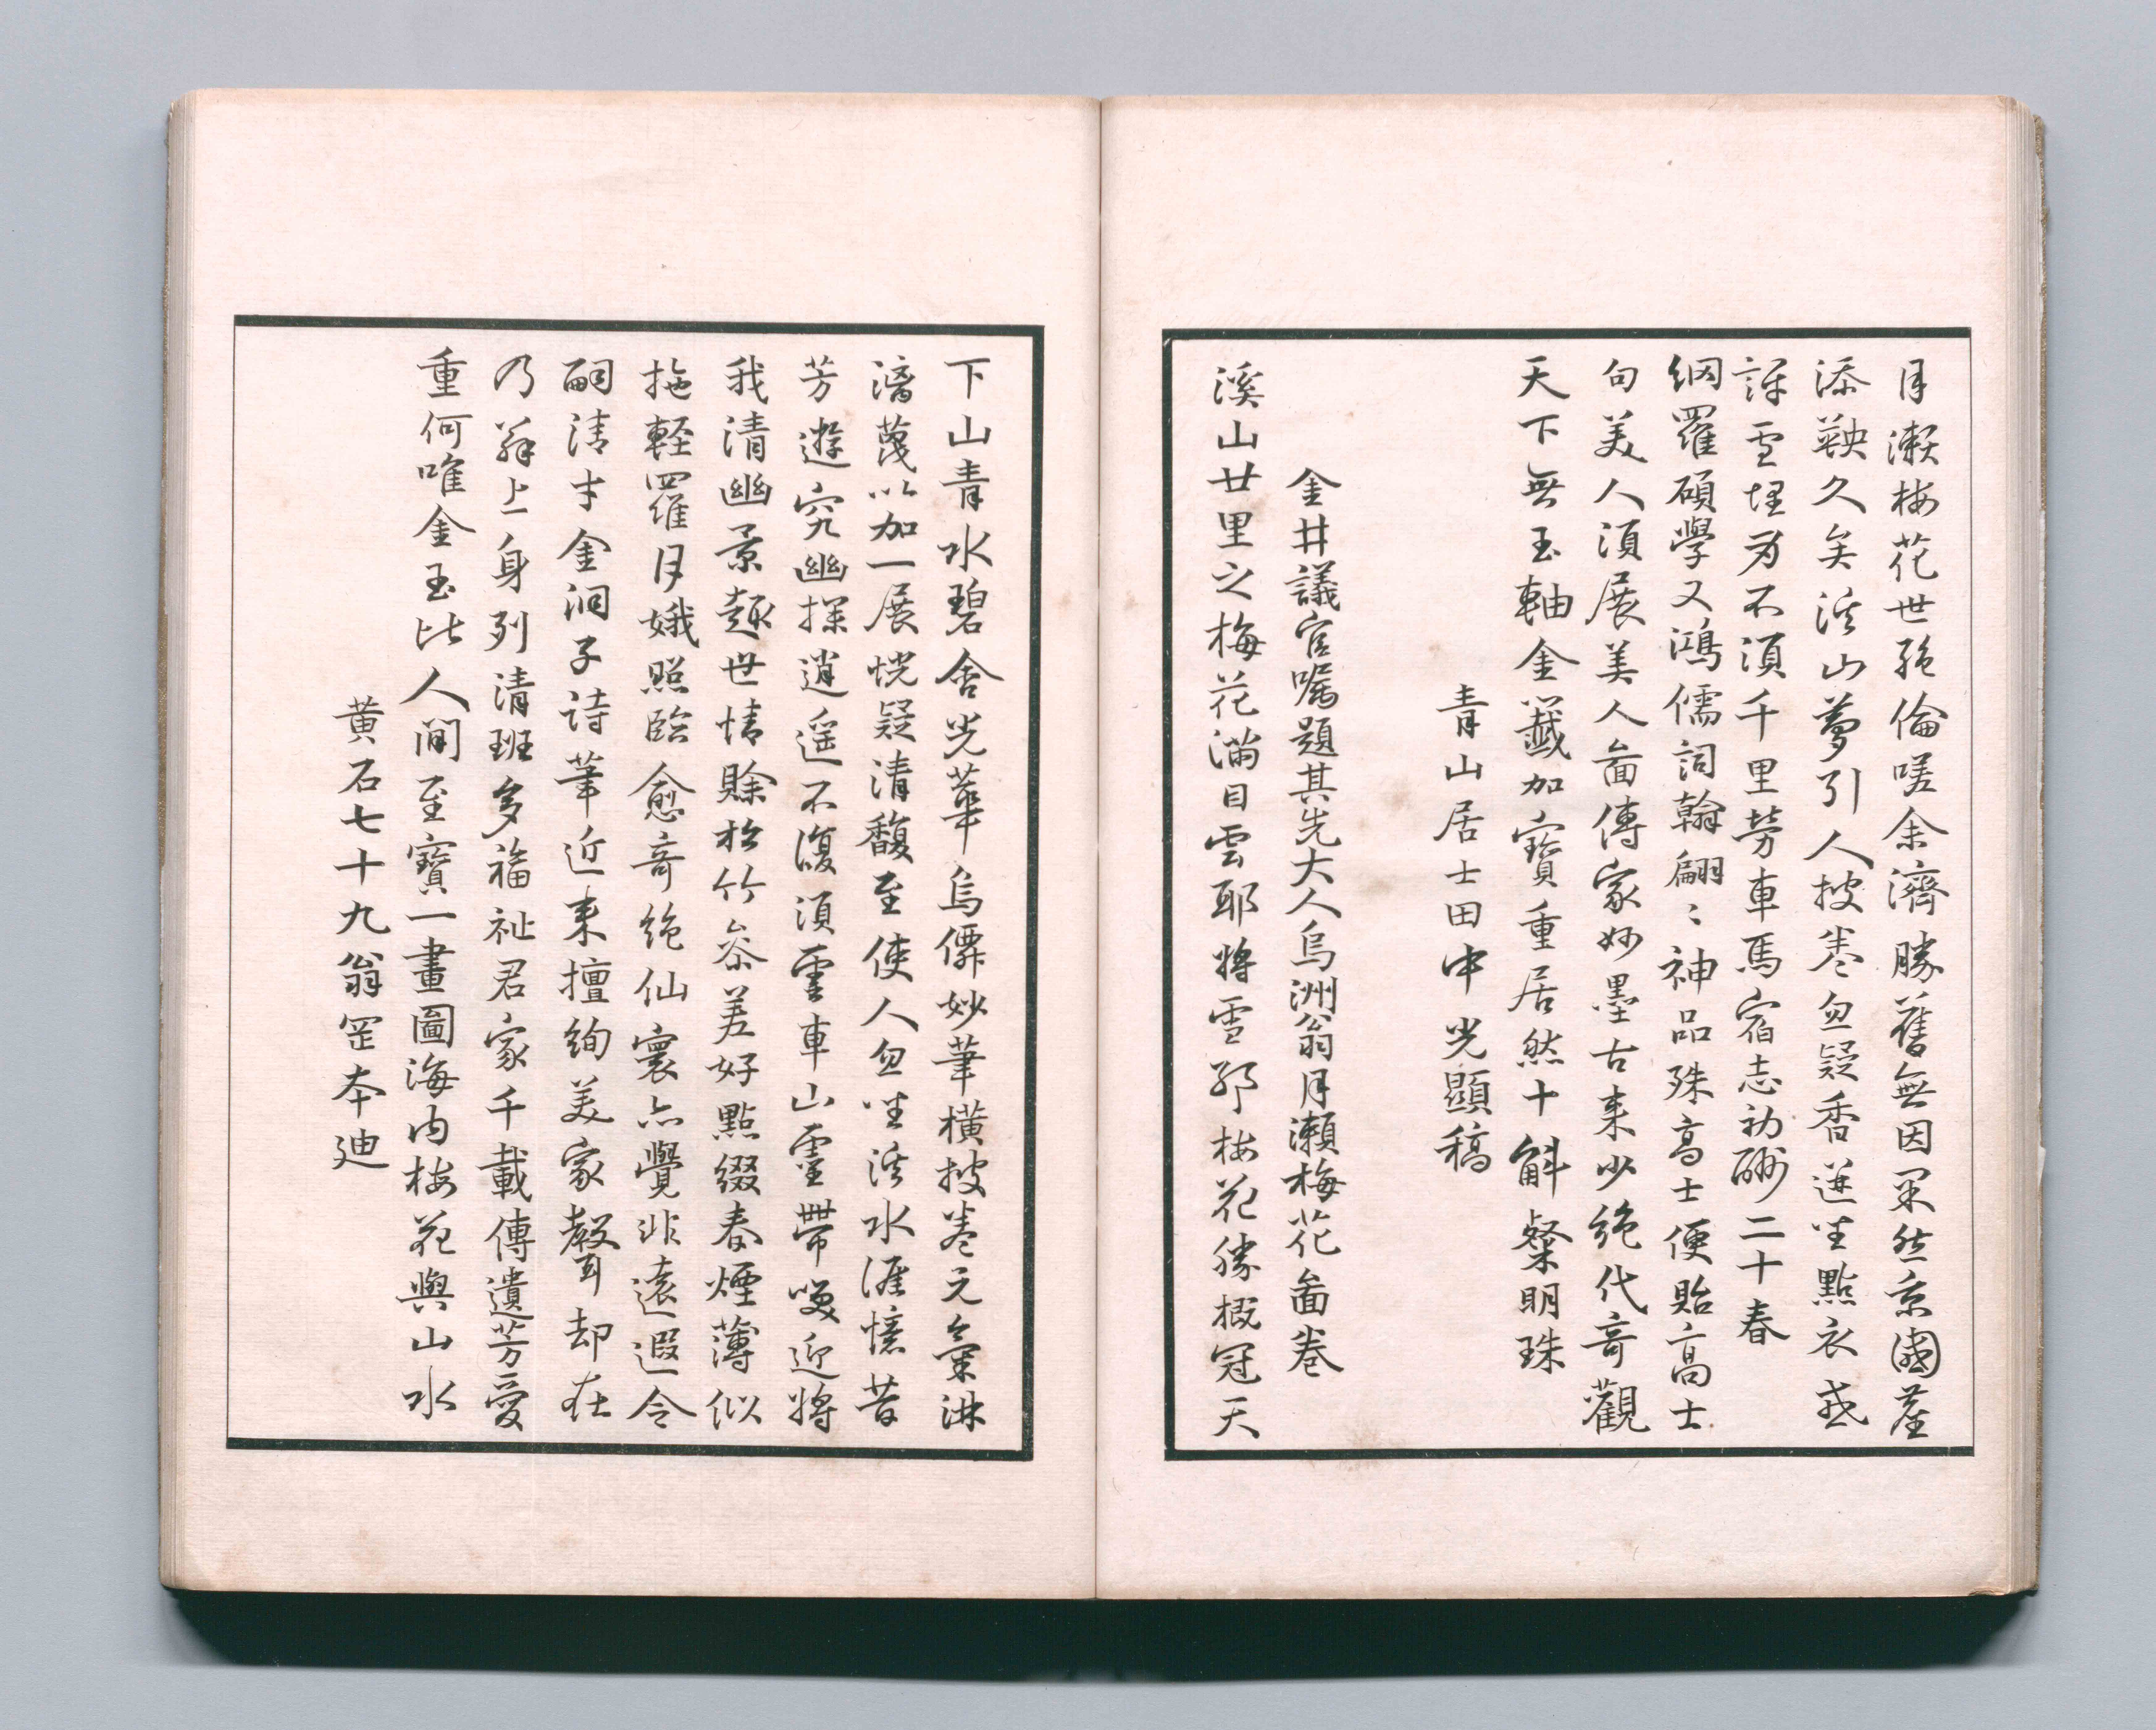 月瀨梅花世絕倫嗟余濟勝舊無因果然京國産
添鞅久矣溪山夢引人披卷忽疑香迸坐點衣或
訝雪埋身不須千里勞車馬宿志初酬二十春
網羅碩學又鴻儒詞翰翩〻神品殊高士便貽高士
句美人須展美人啚傳家妙墨古来少絕代奇觀
天下無玉軸金籤加寶重居然十斛粲明珠
青山居士田中光顯稿
金井議官嘱題其先大人烏洲翁月瀨梅花啚卷
溪山廿里之梅花滿目雲耶將雪耶梅花勝概冠天
下山青水碧含光華烏儛妙筆橫披卷元氣淋
漓蔑以加一展恍疑清馥至使人忽坐溪水涯憶昔
芳遊究幽探逍遥不復須雲車山靈帶暎近將
我清幽景趣世情賒松竹参差好點綴春煙薄似
拖輕羅月娥照臨愈奇絶仙寰亦覺非遠遐令
嗣清才金洞子詩筆近来擅絢美家聲却在
乃翁上身列清班多福祉君家千載傳遺芳愛
重何唯金玉比人間至寶一畫圖海内梅花與山水
黄石七十九翁罡本迪